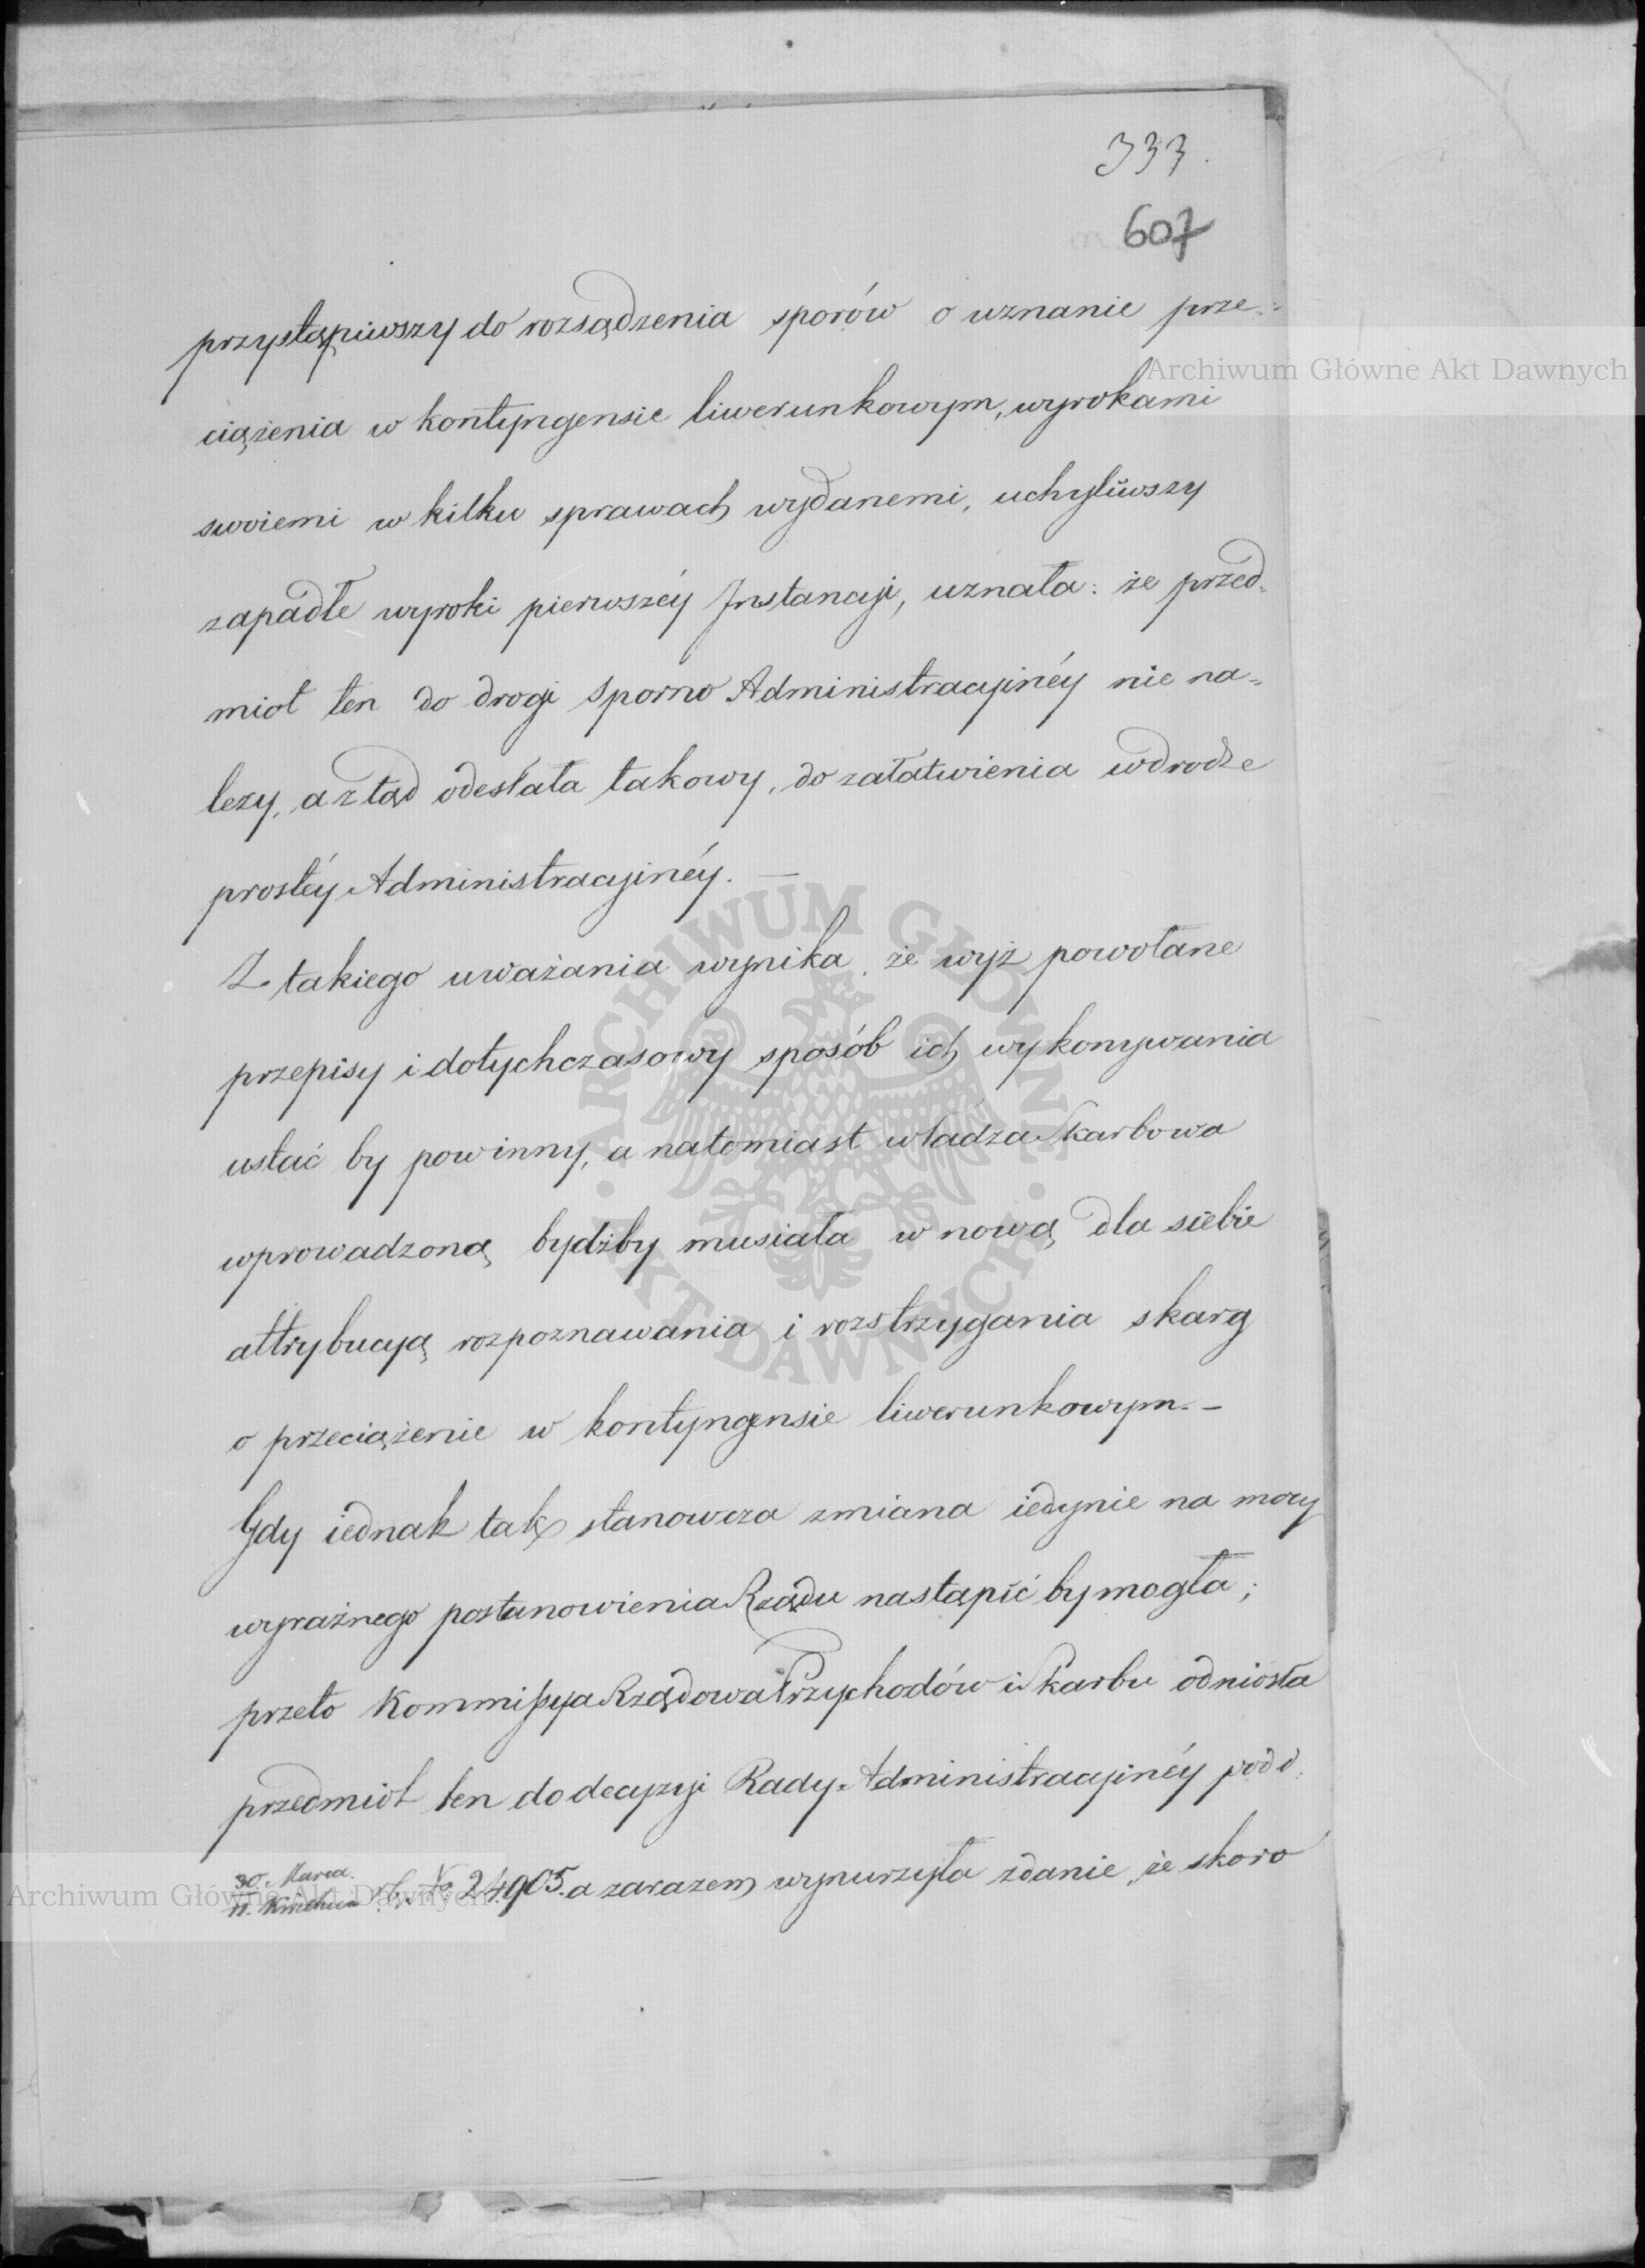 333.
607
przystąpiwszy do rozsądzenia sporów o uznanie prze-
ciążenia w kontyngensie liwerunkowym, wyrokami
swoiemi w kilku sprawach wydanemi, uchyliwszy
zapadłe wyroki pierwszéy Instancyi, uznała: że przed-
miot ten do drogi Sporno Administracyinéy nie na-
leży, a ztąd odesłała takowy, do załatwienia w drodze
prostéy Administracyinéy. —
Z takiego uważania wynika, że wyż powołane
przepisy i dotychczasowy sposób ich wykonywania
ustać by powinny, a natomiast władza Skarbowa
wprowadzoną bydźby musiała w nową dla siebie
attrybucyą rozpoznawania i rozstrzygania skarg
o przeciążenie w kontyngensie liwerunkowym. –
Gdy iednak tak stanowcza zmiana iedynie na mocy
wyraźnego postanowienia Rządu nastąpić by mogła;
przeto Kommissya Rządowa Przychodów i Skarbu odniosła
przedmiot ten do decyzyi Rady Administracyinéy pod d.
30. Marca
11. Kwietnia r. b. No 24,905. a zarazem wynurzyła zdanie, że skoro
Archiwum Główne Akt Dawnych
ARCHIWUM GŁÓWNE
AKT DAWNYCH
Archiwum Główne Akt Dawnych